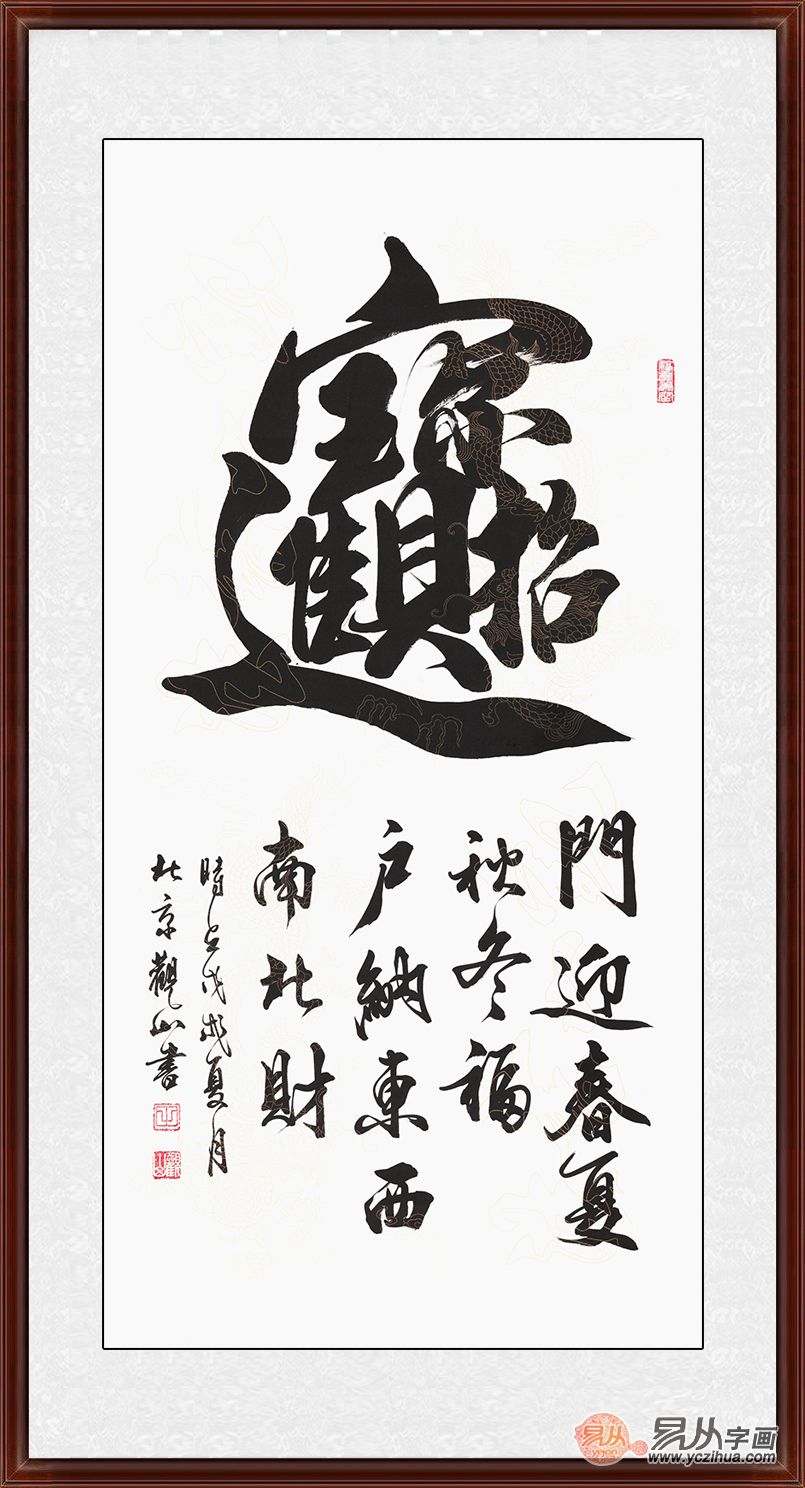 招財進寶
門迎春夏
秋冬福
戶納東西
南北財
時在戊戌夏月
北京觀山書
易从
yicong
易从字画
www.yczihua.com